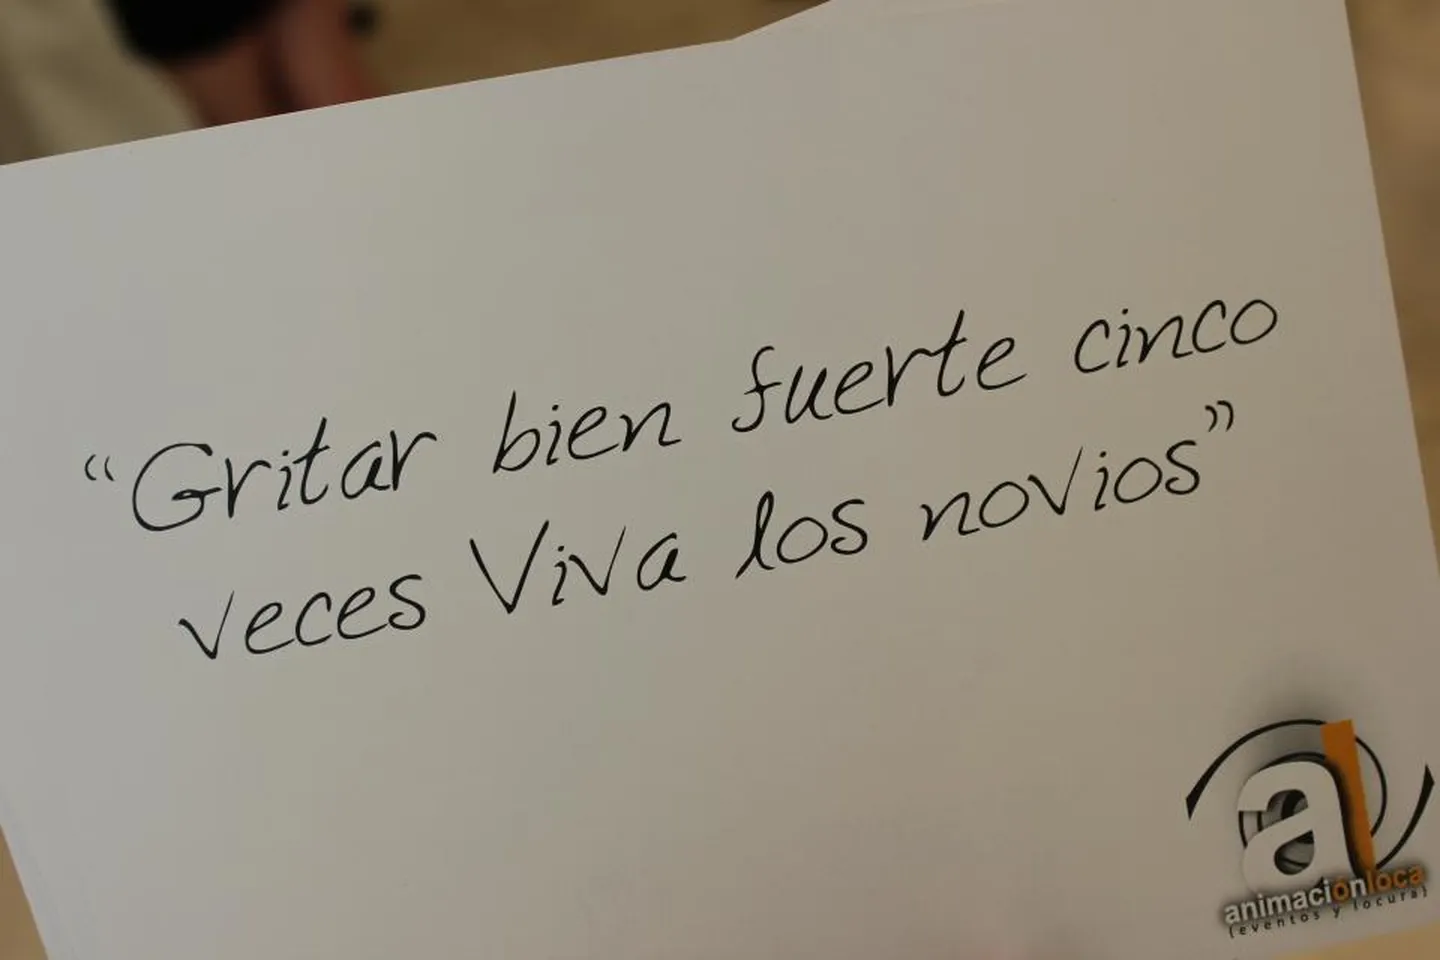 “Gritar bien fuerte cinco
veces Viva los novios”
al
animaciónloca
(eventos y locura)